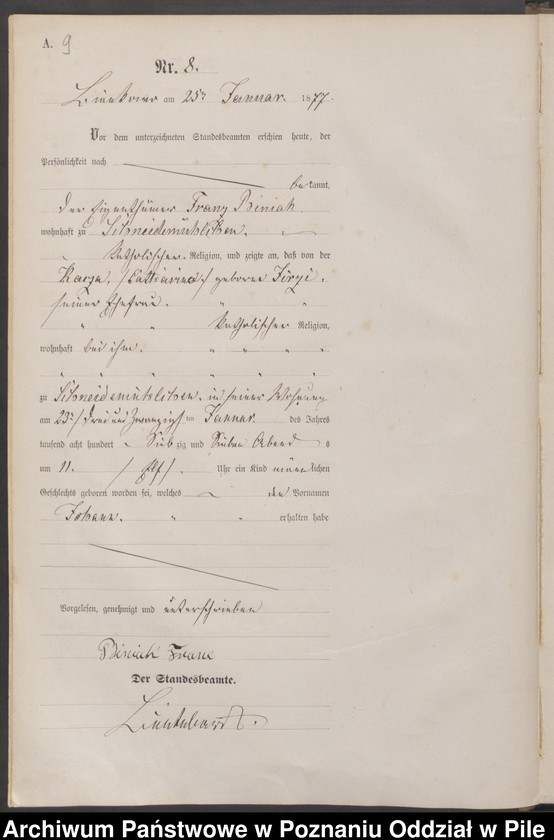 A. 9
Nr. 8.
am 25ten Januar 1877.
Vor dem unterzeichneten Standesbeamten erschien heute, der
Persönlichkeit nach
bekannt,
der Eigenthümer Franz Biniak
wohnhaft zu Schneidemühlchen.
katholischer Religion, und zeigte an, daß von der
/Catharina/ geborene
seiner Ehefrau.
katholischer Religion,
wohnhaft bei ihm.
zu Schneidemühlchen. in seiner Wohnung
am 23ten /drei und zwanzigsten Januar des Jahres
tausend acht hundert siebzig und sieben Abends
um 11. /Elf/ Uhr ein Kind männlichen
Geschlechts geboren worden sei, welches den Vornamen
Johann. erhalten habe
Vorgelesen, genehmigt und unterschrieben
Biniak Franz
Der Standesbeamte.
Archiwum Państwowe w Poznaniu Oddział w Pile